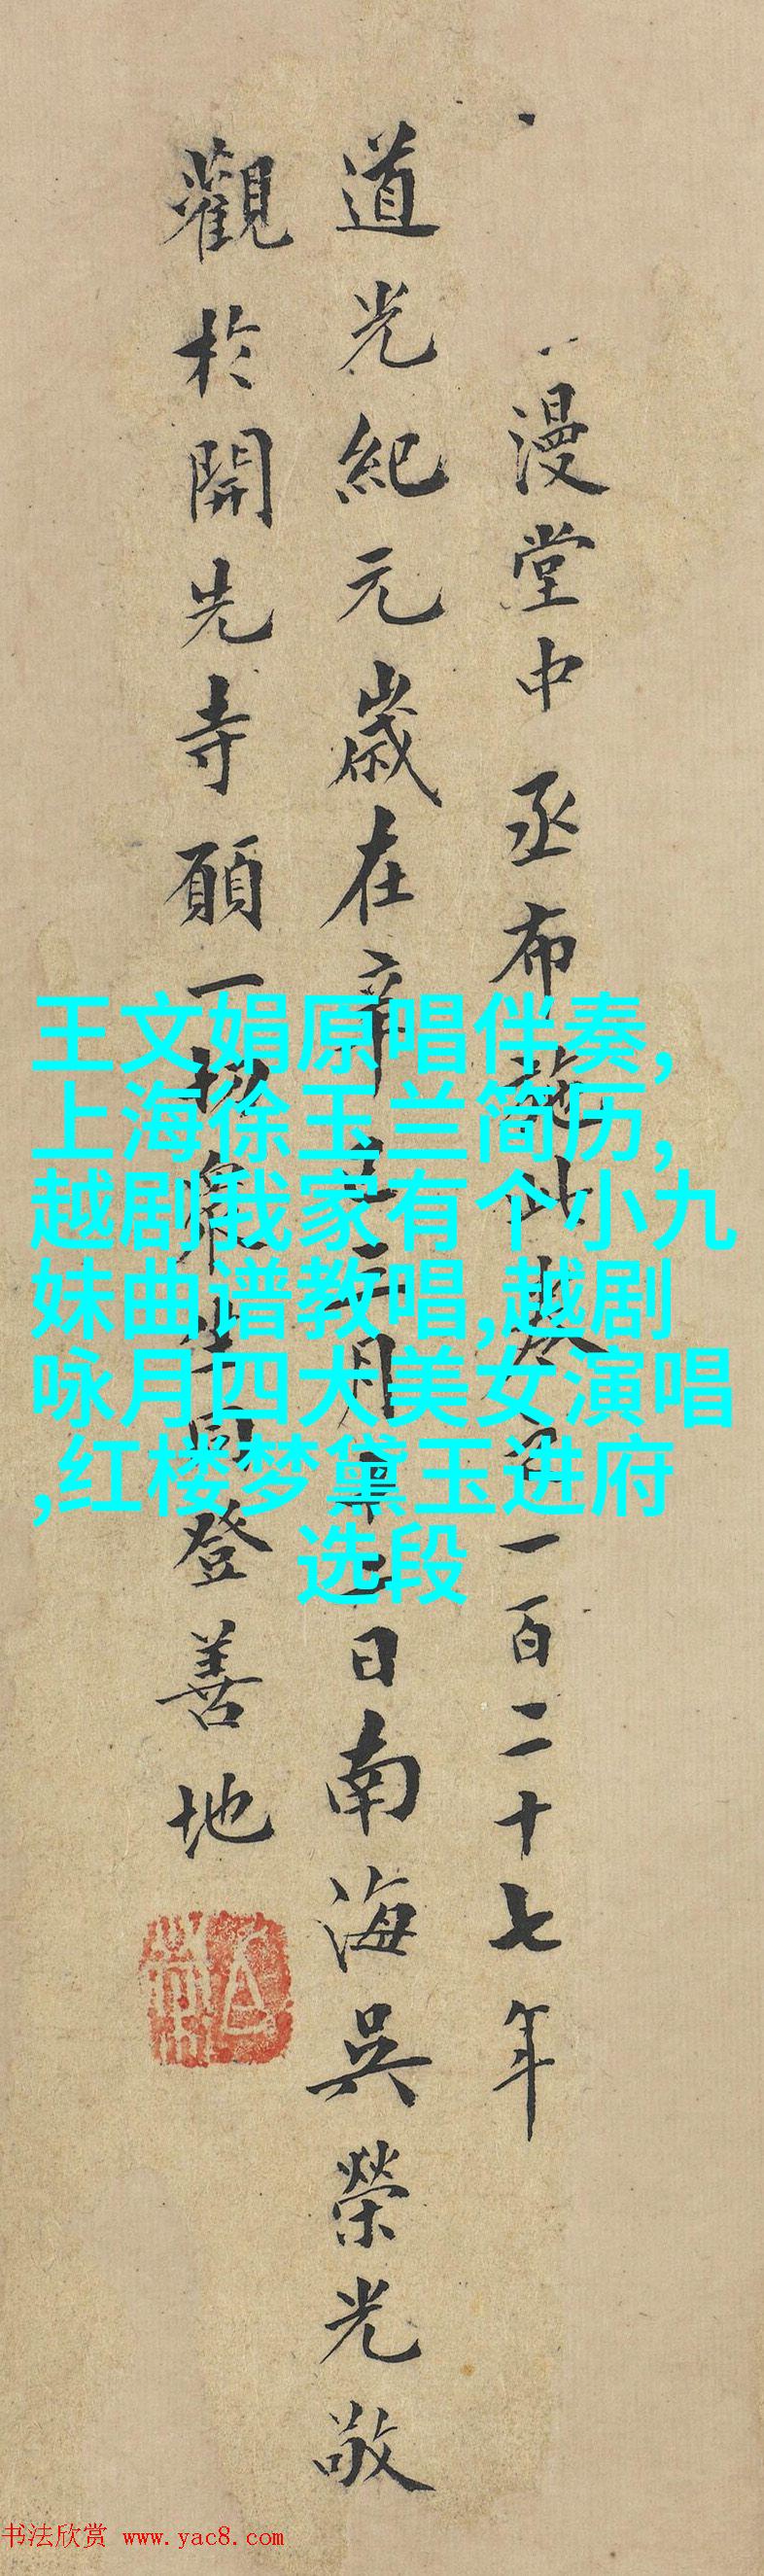 漫堂中丞布施此卷一百二十七年
道光紀元歲在辛巳五月日南海吳榮光敬
觀於開先寺願一切衆生同登善地
王文娟原唱伴奏,
上海徐玉兰简历,
越剧我家有个小九
妹曲谱教唱,越剧
咏月四大美女演唱
,红楼梦黛玉进府
选段
书法欣赏 www.yac8.com